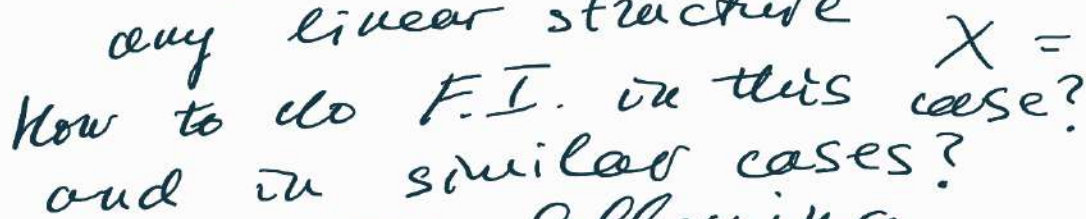 any linear structure X =
How to do F.I. in this case?
and in similar cases?